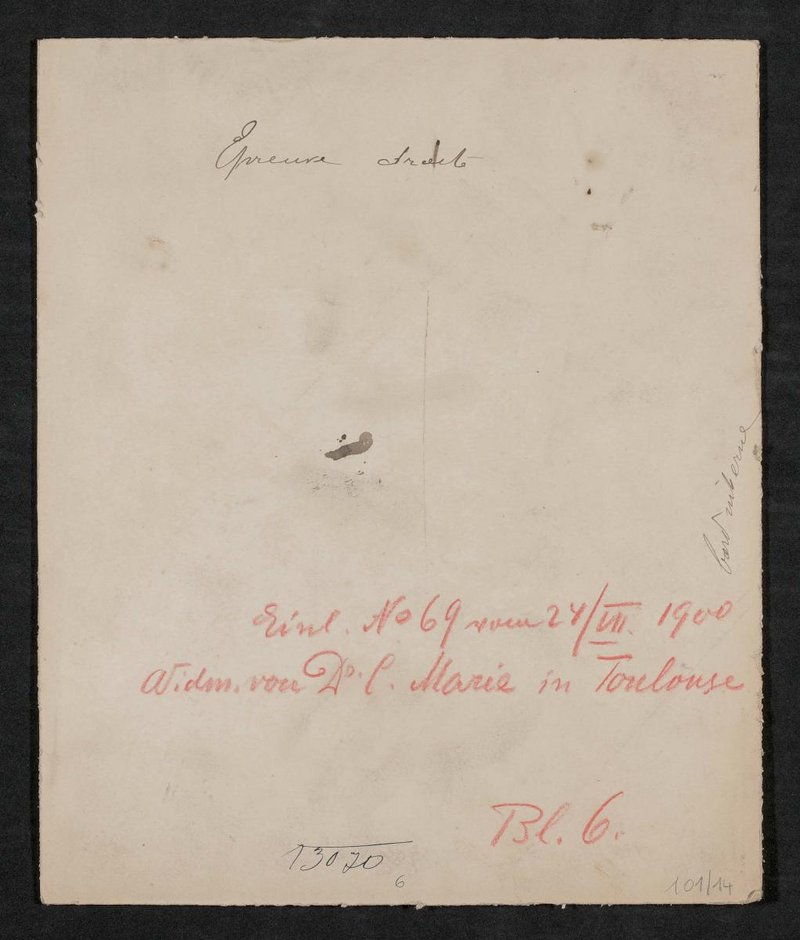 Epreuve droite
bord interne
Einl. No 69 vom 24/VII. 1900
Widm. von Dr. C. Marie in Toulouse
Bl. 6.
13070
6
101/14